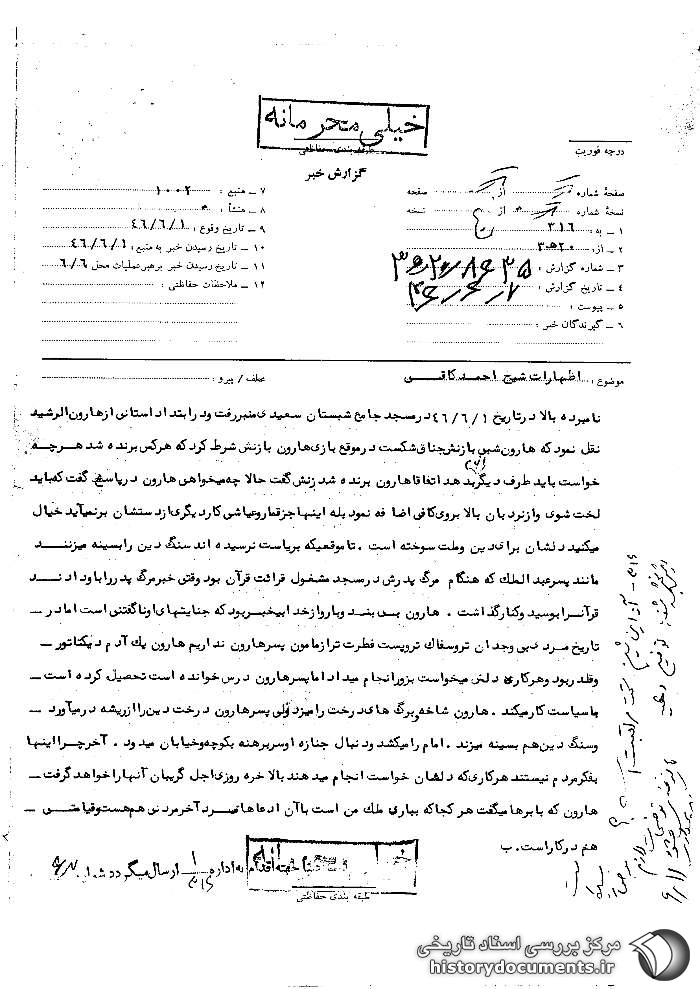 خیلی محرمانه
طبقه بندی حفاظتی
گزارش خبر
درجه فوریت
صفحهٔ شماره از صفحه
نسخهٔ شماره از نسخه
۱ ـ به : ۳۱۶
۲ ـ از : ۲۰ه۳۰
۳ ـ شماره گزارش :
۴ ـ تاریخ گزارش :
۵ ـ پیوست :
۶ ـ گیرندگان خبر :
۷ ـ منبع : ۱۰۰۲
۸ ـ منشأ :
۹ ـ تاریخ وقوع : ۴۶/۶/۱
۱۰ ـ تاریخ رسیدن خبر به منبع : ۴۶/۶/۱
۱۱ ـ تاریخ رسیدن خبر برهبر عملیات محل ۶/۶
۱۲ ـ ملاحظات حفاظتی :
موضوع : اظهارات شیخ احمد کافی
عطف / پیرو :
نامبرده بالا در تاریخ ۴۶/۶/۱ در مسجد جامع شبستان سعیدی منبر رفت و در ابتدا داستانی از هارون الرشید
نقل نمود که هارون شبی با زنش جناق شکست در موقع بازی هارون با زنش شرط کرد که هر کس برنده شد هر چه
خواست باید طرف دیگر بدهد اتفاقا هارون برنده شد زنش گفت حالا چه میخواهی هارون در پاسخ گفت که باید
لخت شوی و از نردبان بالا بروی کافی اضافه نمود بله اینها جز قمار و عیاشی کار دیگری از دستشان بر نمیآید خیال
میکنید دلشان برای دین و ملت سوخته است . تا موقعیکه بریاست نرسیده اند سنگ دین را بسینه میزنند
مانند پسر عبدالملک که هنگام مرگ پدرش در مسجد مشغول قرائت قرآن بود وقتی خبر مرگ پدر را باو دادند
قرآن را بوسید و کنار گذاشت . هارون بی بند و بار و از خدا بیخبر بود که جنایتهای او ناگفتنی است اما در ـ
تاریخ مردی بی وجدان تر و سفاک تر و پست فطرت تر از مامون پسر هارون نداریم هارون یک آدم دیکتاتور ـ
و قلدر بود و هر کاری دلش میخواست بزور انجام میداد اما پسر هارون درس خوانده است تحصیل کرده است ـ
با سیاست کار میکند . هارون شاخه و برگ های درخت را میزد ولی پسر هارون درخت دین را از ریشه در میآورد ـ
و سنگ دین هم بسینه میزند . امام را میکشد و دنبال جنازه او سر برهنه بکوچه و خیابان میدود . آخر چرا اینها
بفکر مردم نیستند هر کاری که دلشان خواست انجام میدهند بالاخره روزی اجل گریبان آنها را خواهد گرفت ـ
هارون که با ابرها میگفت هر کجا که بباری ملک من است با آن ادعاها مرد آخر مردنی هم هست و قیامتی ـ
هم در کار است . ب
اقدام به اداره ارسال میگردد
طبقه بندی حفاظتی
مرکز بررسی اسناد تاریخی
historydocuments.ir